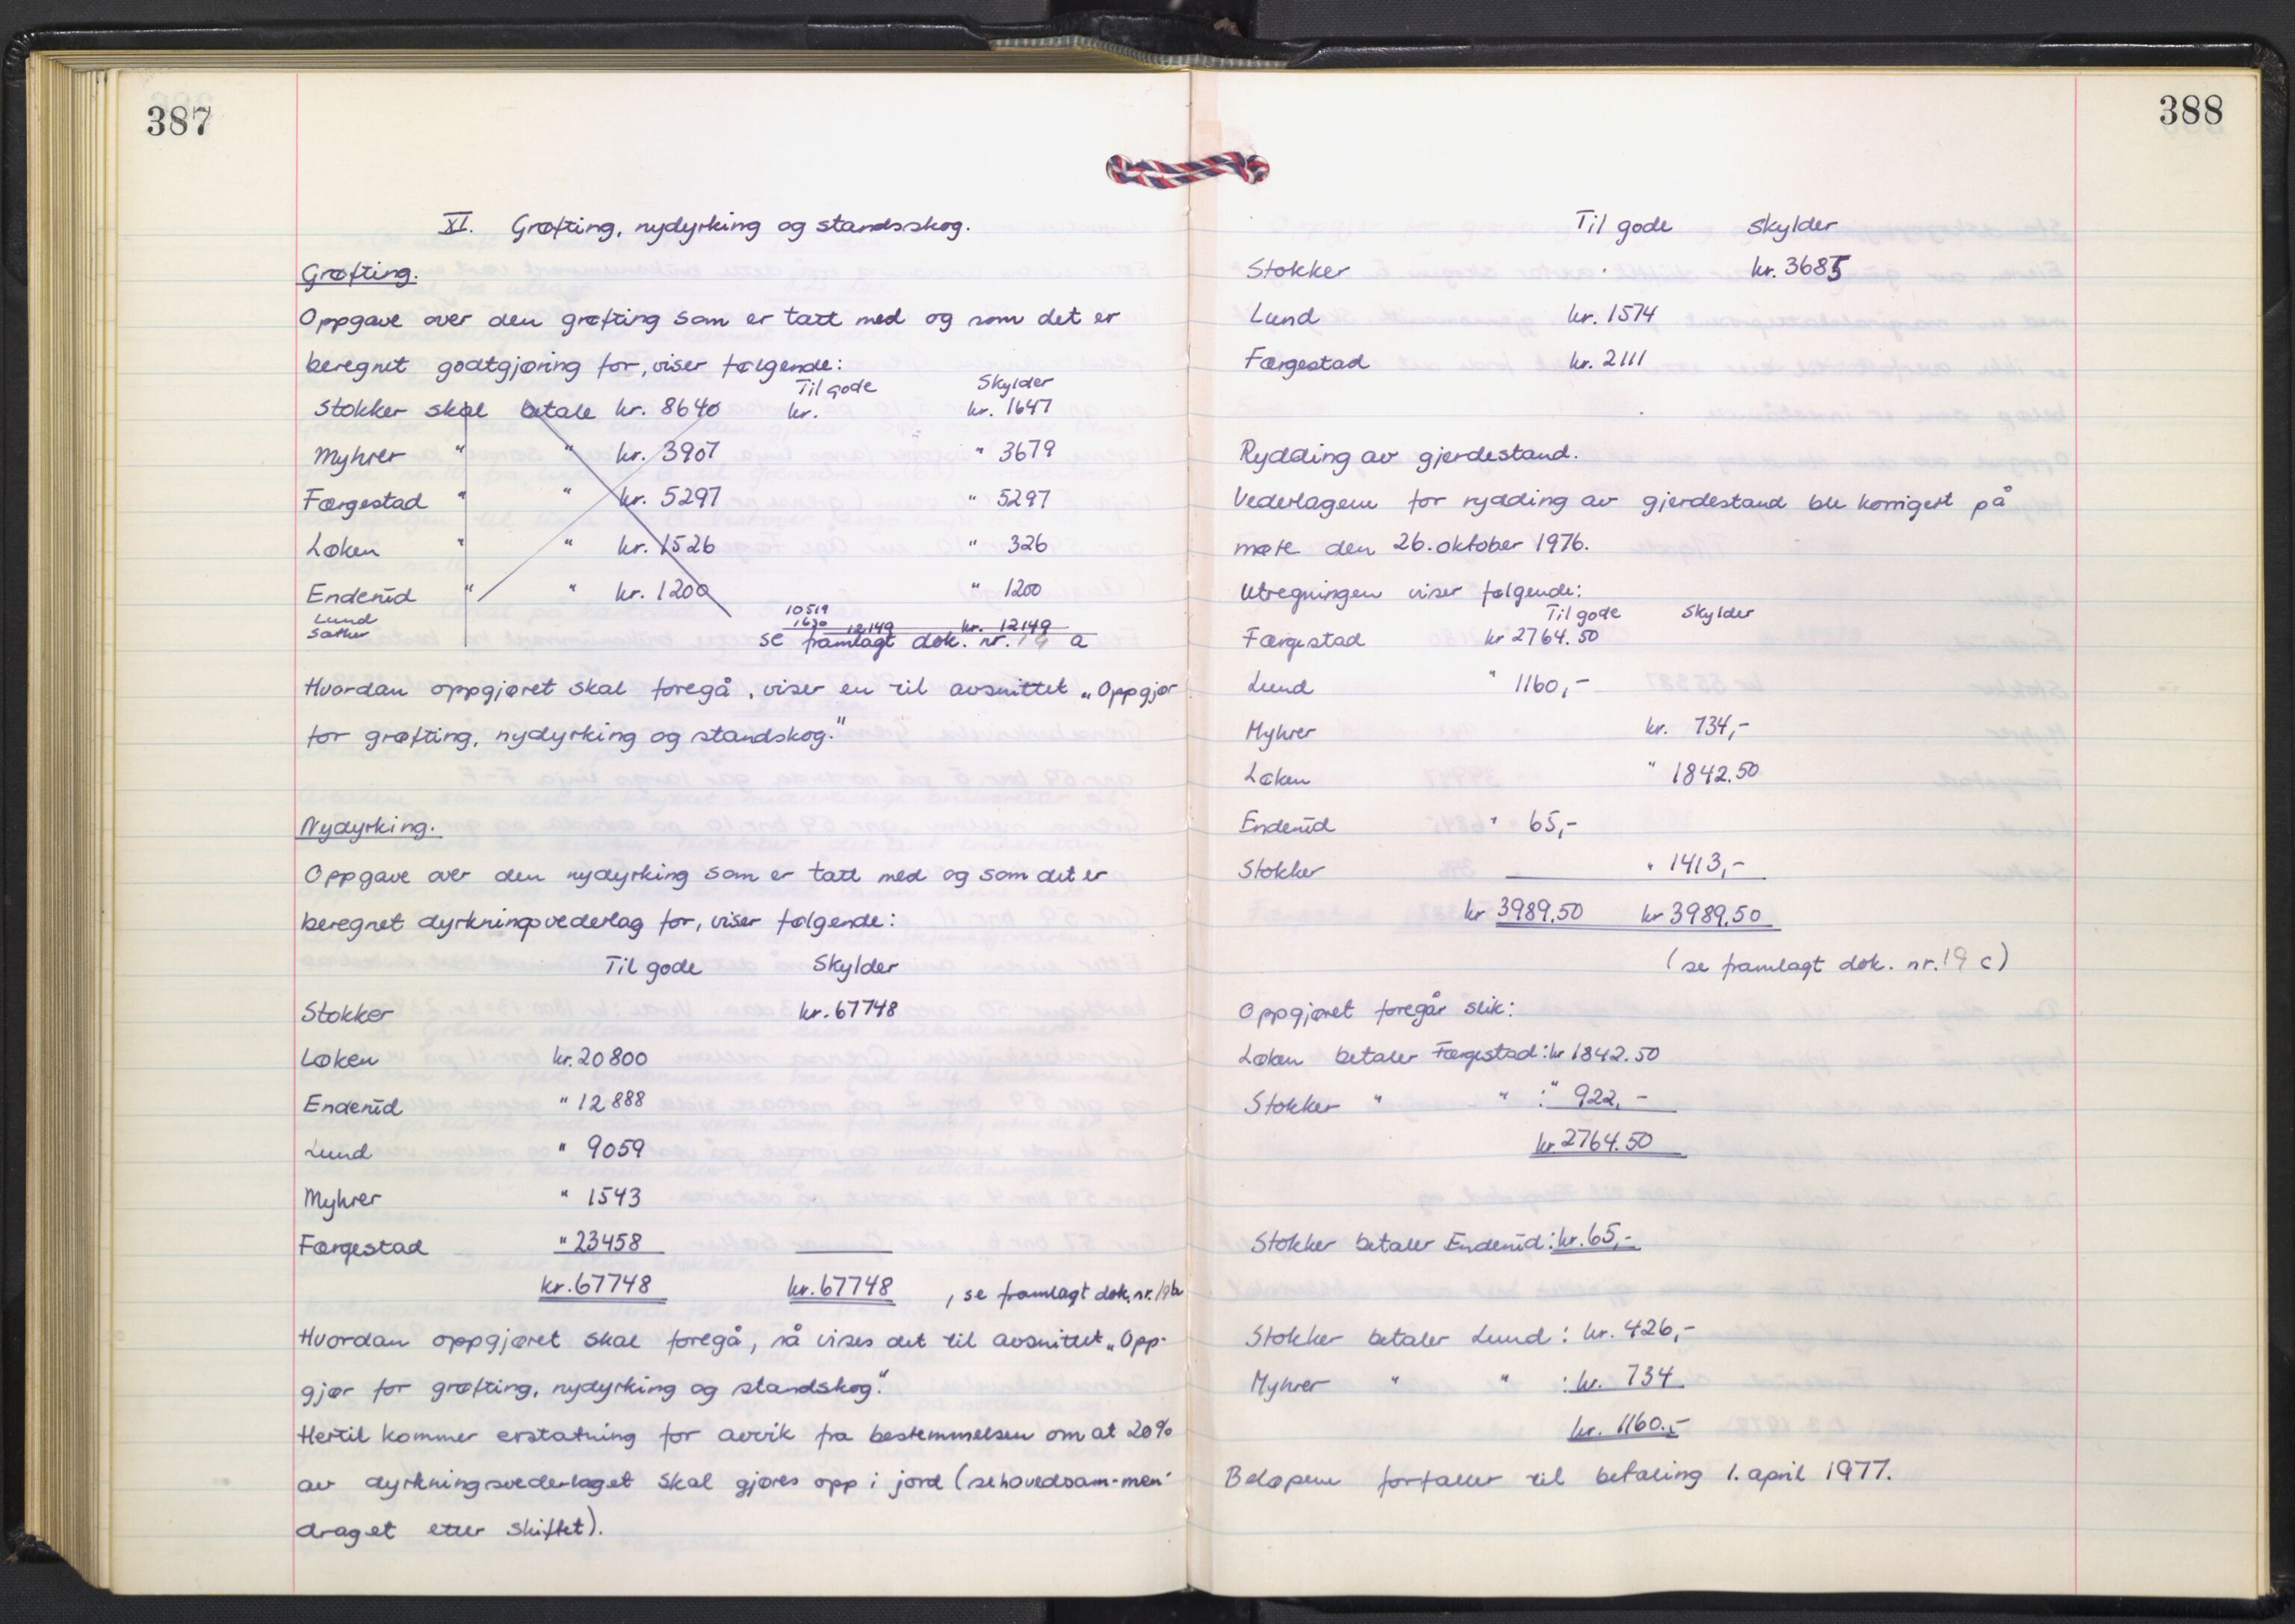 387
XI. Grøfting, nydyrking og standsskog.
Grøfting.
Oppgave over den grøfting som er tatt med og som det er
beregnet godtgjøring for, viser følgende:
Til gode Skylder
Stokker skal betale kr. 8640 kr. kr. 1647
Myhrer " " kr. 3907 " 3679
Færgestad " " kr. 5297 " 5297
Løken " " kr. 1526 " 326
Enderud " " kr. 1200 " 1200
Lund 10519
Sæther 1630 12149 kr. 12149
se framlagt dok. nr. 19 a
Hvordan oppgjøret skal foregå, viser en til avsnittet „Oppgjør
for grøfting, nydyrking og standskog."
Nydyrking.
Oppgave over den nydyrking som er tatt med og som det er
beregnet dyrkningsvederlag for, viser følgende:
Til gode Skylder
Stokker kr. 67748
Løken kr. 20800
Enderud " 12888
Lund " 9059
Myhrer " 1543
Færgestad " 23458
kr. 67748 kr. 67748 , se framlagt dok. nr. 19b
Hvordan oppgjøret skal foregå, så vises det til avsnittet „Opp-
gjør for grøfting, nydyrking og standskog."
Hertil kommer erstatning for avvik fra bestemmelsen om at 20%
av dyrkningsvederlaget skal gjøres opp i jord (se hovedsam-men-
draget etter skiftet).
388
Til gode Skylder
Stokker kr. 3685
Lund kr. 1574
Færgestad kr. 2111
Rydding av gjerdestand.
Vederlagene for rydding av gjerdestand ble korrigert på
møte den 26. oktober 1976.
Utregningen viser følgende:
Til gode Skylder
Færgestad kr 2764.50
Lund " 1160,-
Myhrer kr. 734,-
Løken " 1842.50
Enderud " 65,-
Stokker " 1413,-
kr 3989,50 kr 3989,50
(se framlagt dok. nr. 19 c)
Oppgjøret foregår slik:
Løken betaler Færgestad: kr 1842.50
Stokker " " : " 922,-
kr 2764.50
Stokker betaler Enderud: kr. 65,-
Stokker betaler Lund: kr. 426,-
Myhrer " " : kr. 734
kr. 1160.-
Beløpene forfaller til betaling 1. april 1977.